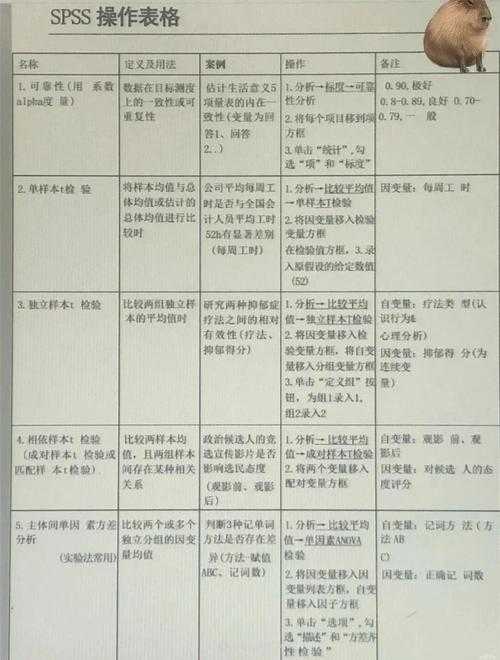 SPSS 操作表格
名称
定义及用法
案例
操作
备注
1.可靠性(用 系数
alpha度 量)
数据在目标测度
上的一致性或可
重复性
估计生活意义5
项量表的内在一
致性(变量为回
答1、回答
2..)
1.分析→标度→可靠
性分析
2.将每个项目移到项
方框
3.单击“统计”,勾
选“项”和“标度”
0.90,极好
0.8-0.89,良好 0.70-
0.79,一 般
2.单样本t检 验
将样本均值与总
体均值或估计的
总体均值进行比
较时
公司平均每周工
时是否与全国会
计人员平均工时
52h有显著差别
(每周工时)
1.分析→比较平均值
→单样本T检验
2.将因变量移入检验
变量方框
在检验值方框，3.录
入原假设的给定数值
(52)
因变量：每周工 时
3.独立样本t 检验
比较两组独立样
本的平均值时
研究两种抑郁症
疗法之间的相对
有效性(疗法、
抑郁得分)
1.分析→比较平均
值→独立样本T检验
2.将因变量移入检
验变量方框，将自变
量移入分组变量方框
3.单击“定义组”按
钮，为组1录入1,
组2录入2
自变量：疗法类 型(认
识行为&
心理分析)
因变量：抑郁得 分(为
连续变
量)
4.相依样本t 检验
(成对样本t 检验或
匹配样 本t检验)
比较两样本均
值，且两组样本
间存在某种相关
关系
政治候选人的竞
选宣传影片是否
影响选民态度
(观影前、观影
后)
1.分析→比较平均
值→成对样本T检验
2.将两个变量移入
配对变量方框
自变量：观影 前、观
影后
因变量：对候选 人的态
度评分
5.主体间单因 素方差
分析
(实验法常用)
比较两个或多个
独立分组的因变
量均值
判断3种记单词
方法是否存在差
异(方法-赋值
ABC、记词数)
1.分析→比较平均
值→单因素ANOVA
检验
2.将因变量移入因
变量列表方框，自变
量移入因子方框
3.单击“选项”,勾
选“描述”和“方差齐
性检验”
自变量：记词方 法(方
法AB
C)
因变量：正确记 词数